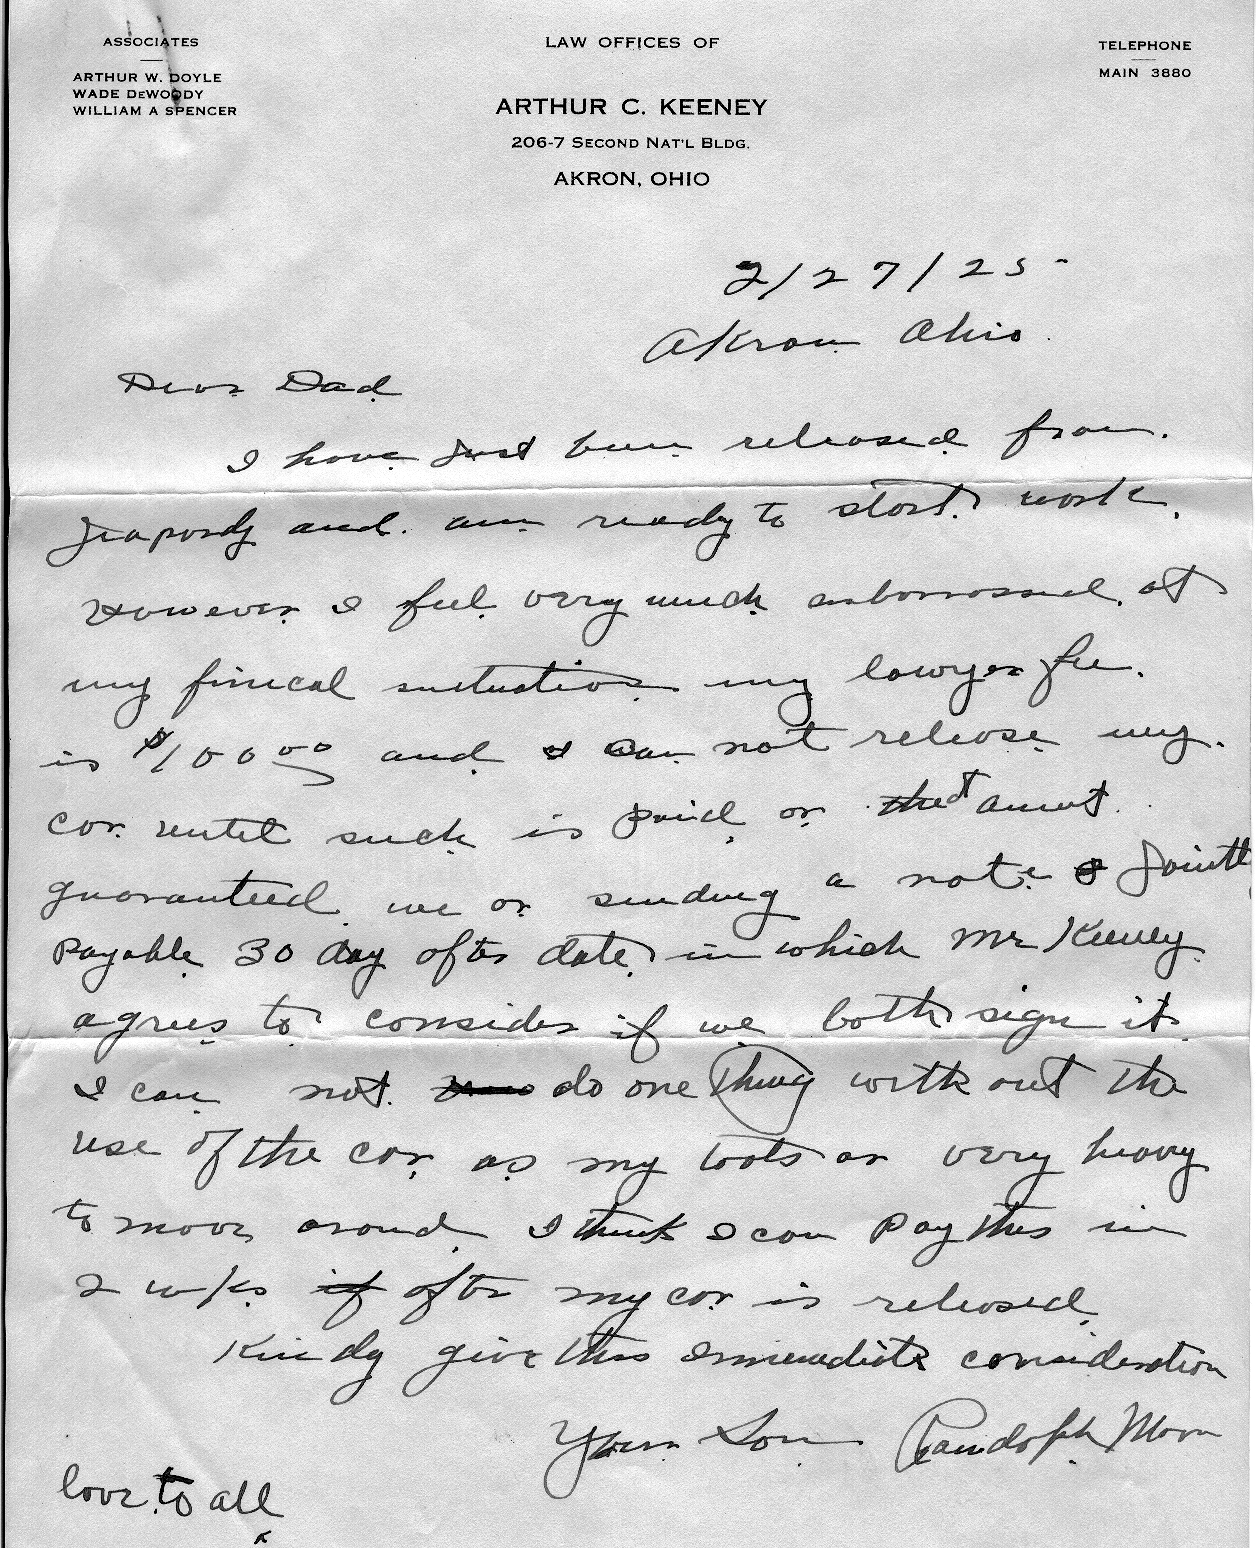 ASSOCIATES
ARTHUR W. DOYLE
WADE DEWOODY
WILLIAM A SPENCER
LAW OFFICES OF
ARTHUR C. KEENEY
206-7 SECOND NAT'L BLDG.
AKRON, OHIO
TELEPHONE
MAIN 3880
2/27/25
Akron Ohio.
Dear Dad
I have Just been released from.
Jeapordy and. am ready to start work.
However I feel very much embarrassed. at
my finical situation my lawyer fee.
is $100 00 and I can not release my.
car until such is paid, or that amout.
guaranteed we or sending a note Jointly
payable 30 day after date, in which Mr Keeney
agrees to consider if we both sign it.
I can not. do one thing without the
use of the car as my tools ar very heavy
to move around I think I can pay this in
2 wks if after my car is released.
Kindly give this Immediate consideration
Your Son Randolph
love to all